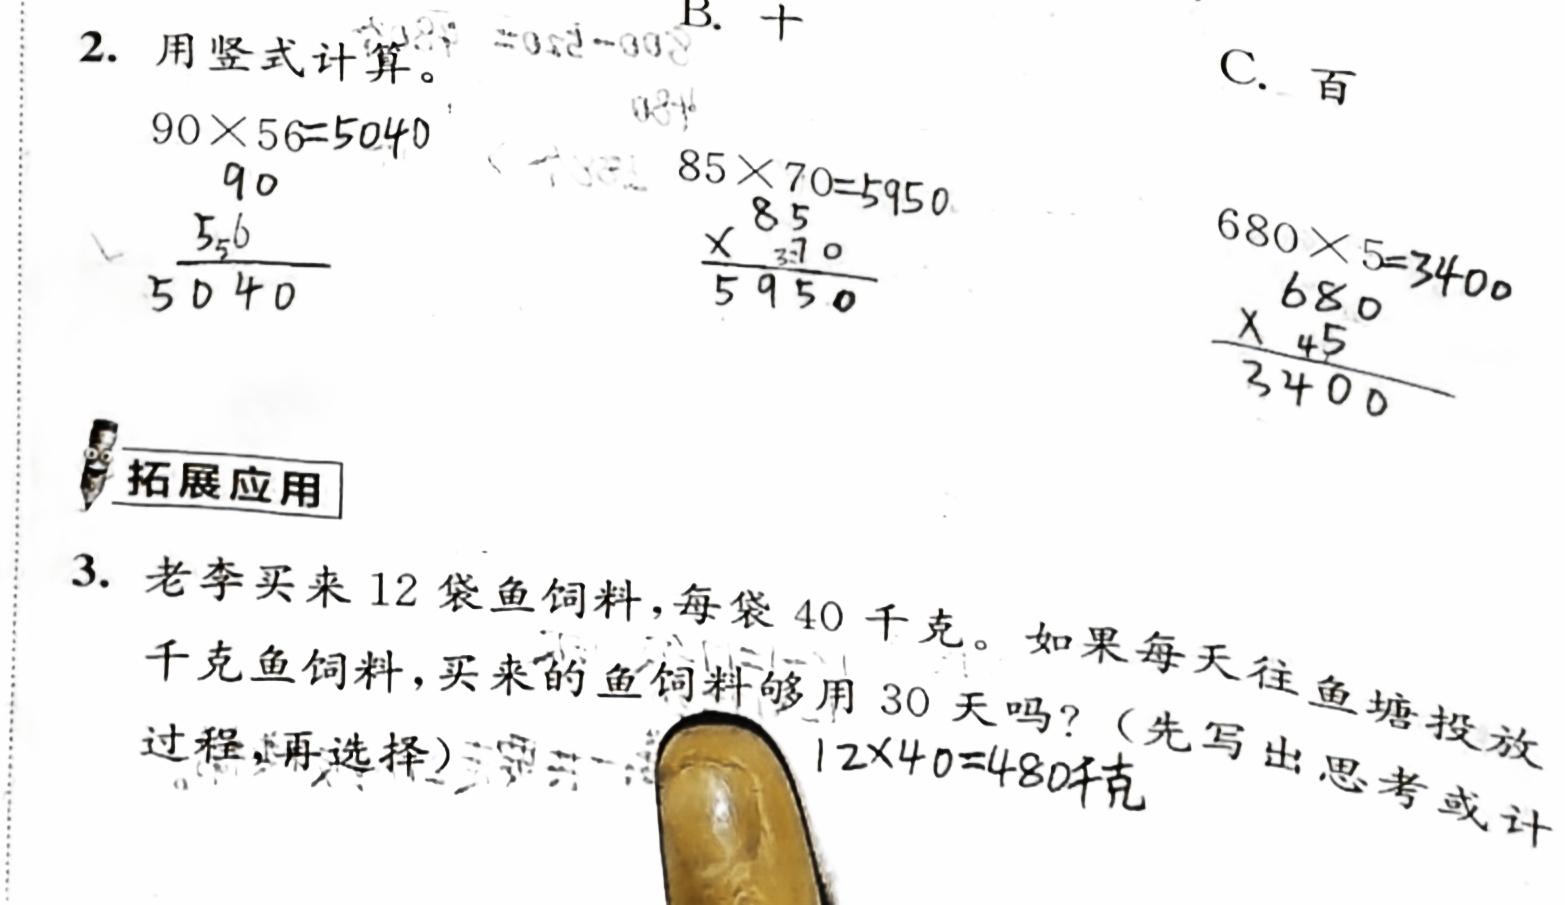 B. 十
C. 百
2. 用竖式计算。
90×56=5040
90
556
5040
85×70=5950
85
× 370
5950
680×5=3400
680
× 45
3400
拓展应用
3. 老李买来 12 袋鱼饲料，每袋 40 千克。如果每天往鱼塘投放
千克鱼饲料，买来的鱼饲料够用 30 天吗？（先写出思考或计
过程，再选择）
12×40=480千克